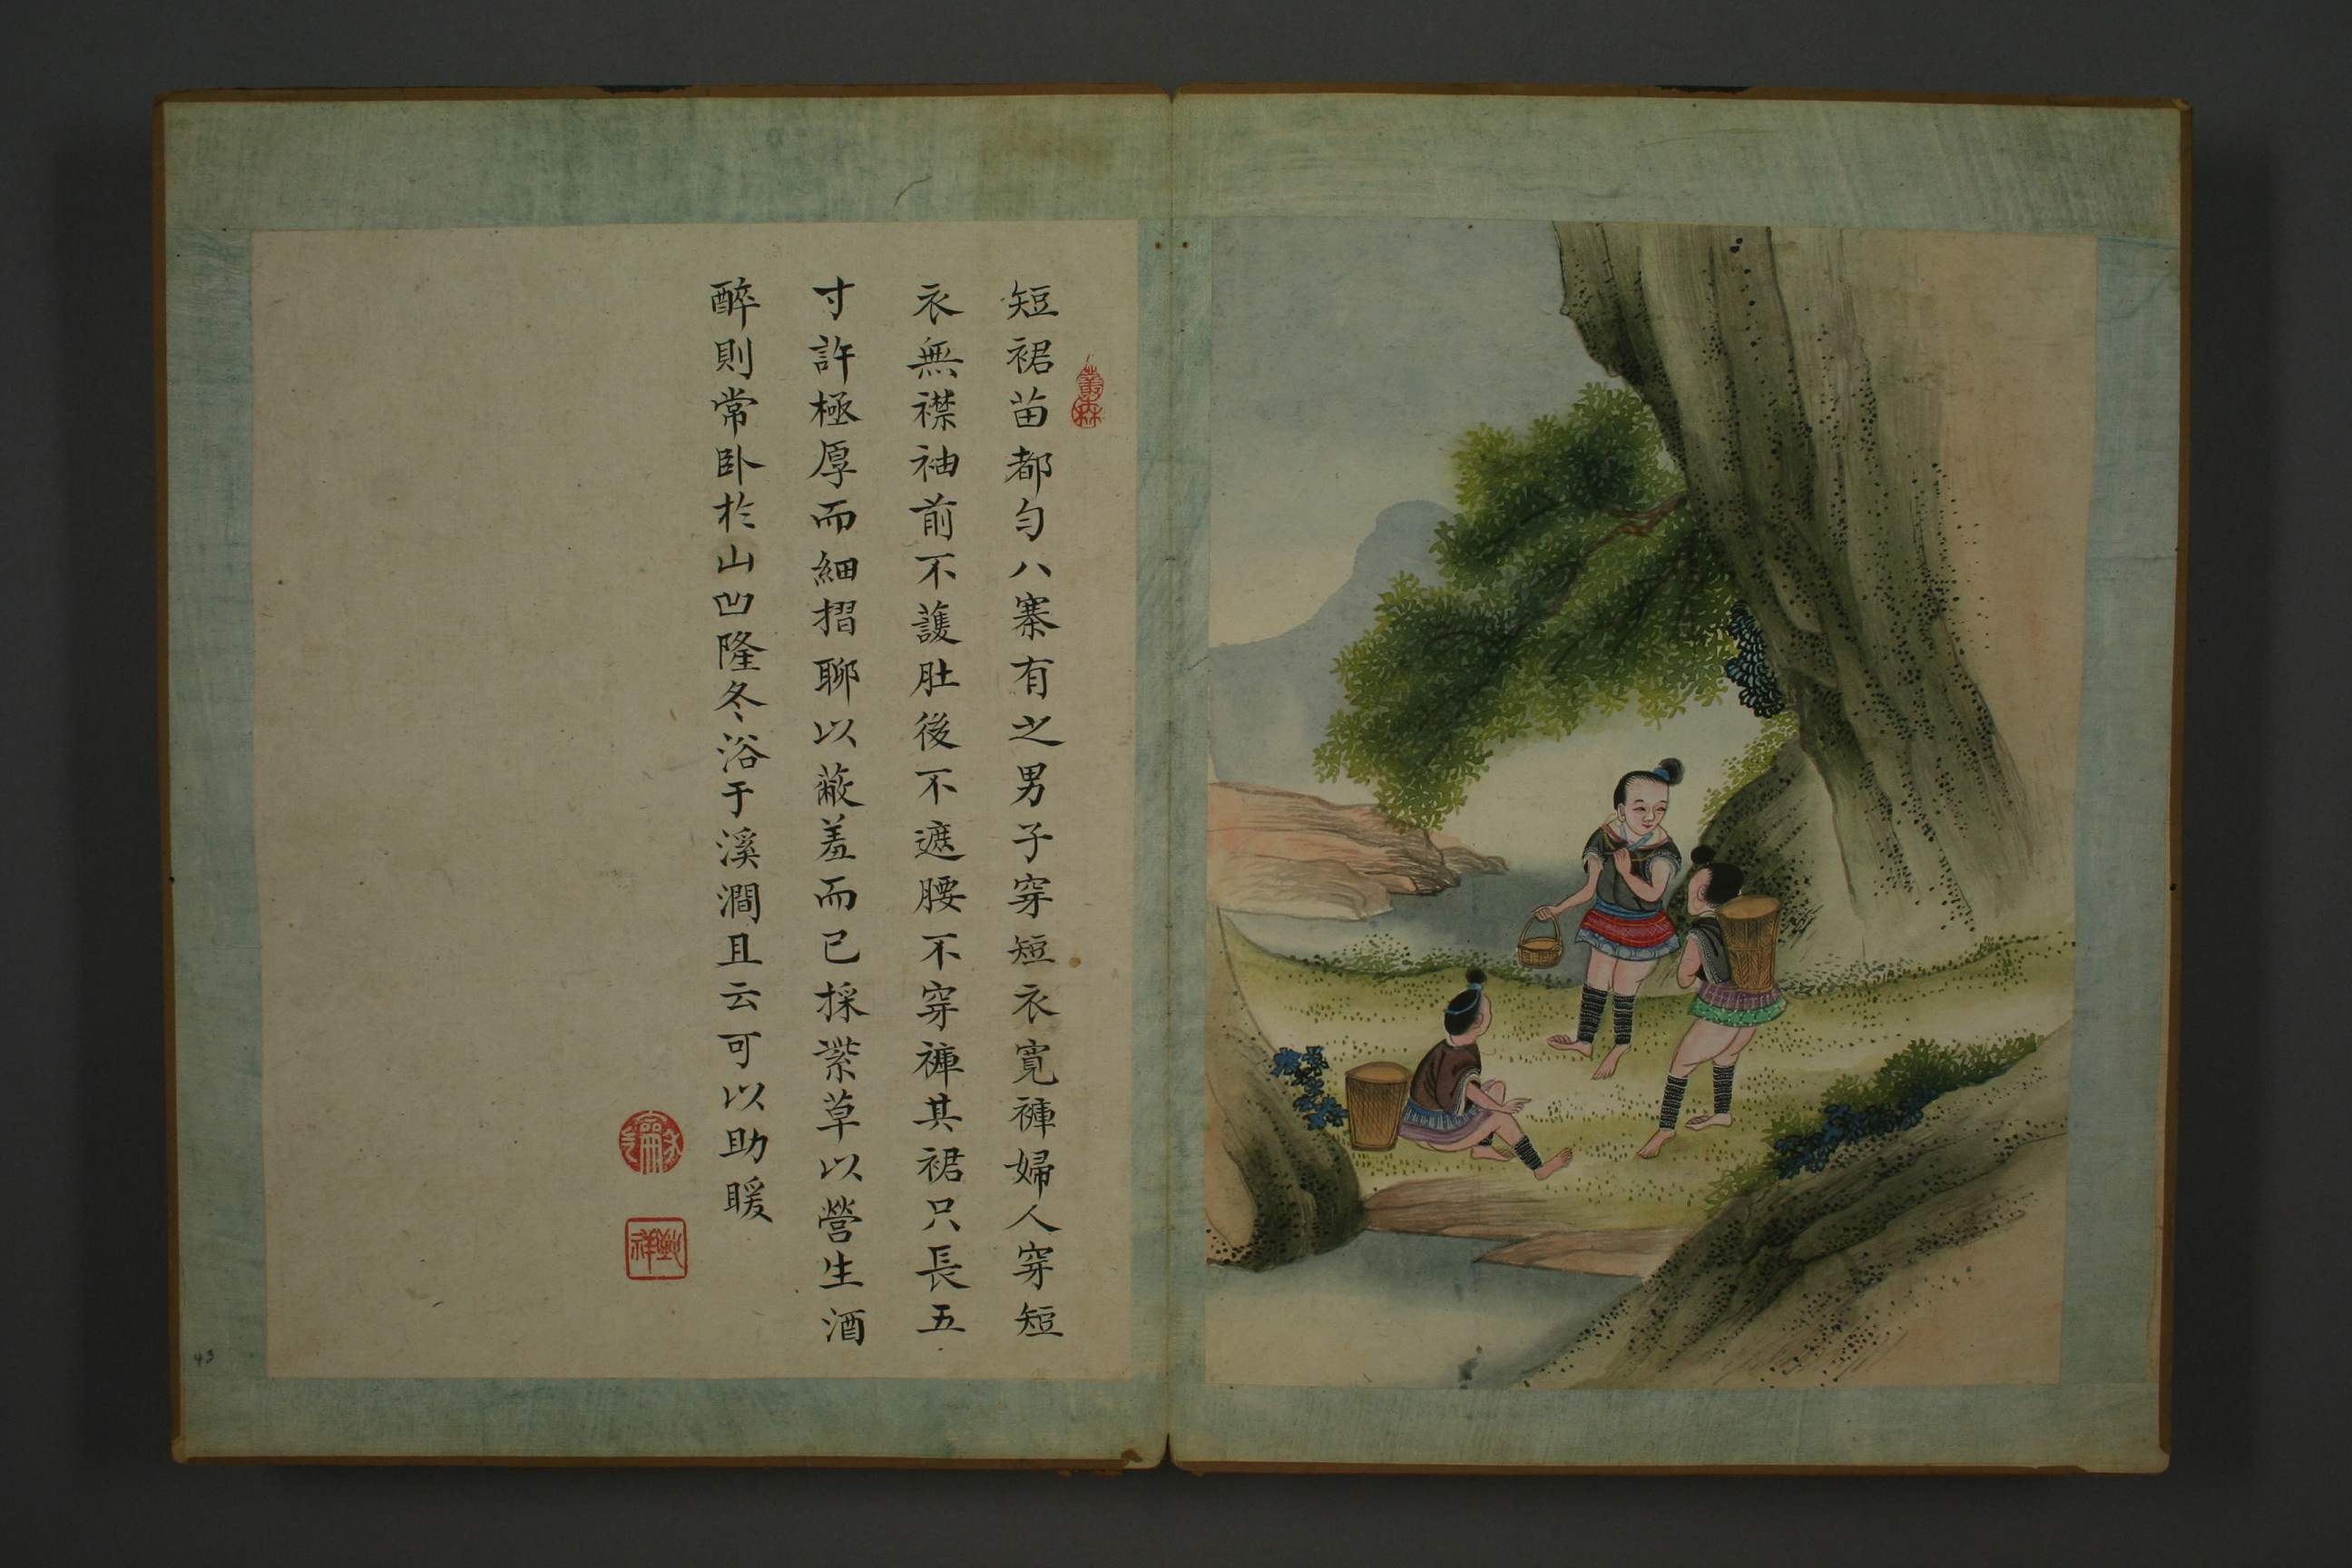 短裙苗都匀八寨有之男子穿短衣寬褲婦人穿短
衣無襟袖前不護肚後不遮腰不穿褲其裙只長五
寸許極厚而細摺聊以蔽羞而已採紫草以營生酒
醉則常卧於山凹隆冬浴于溪澗且云可以助暖
43